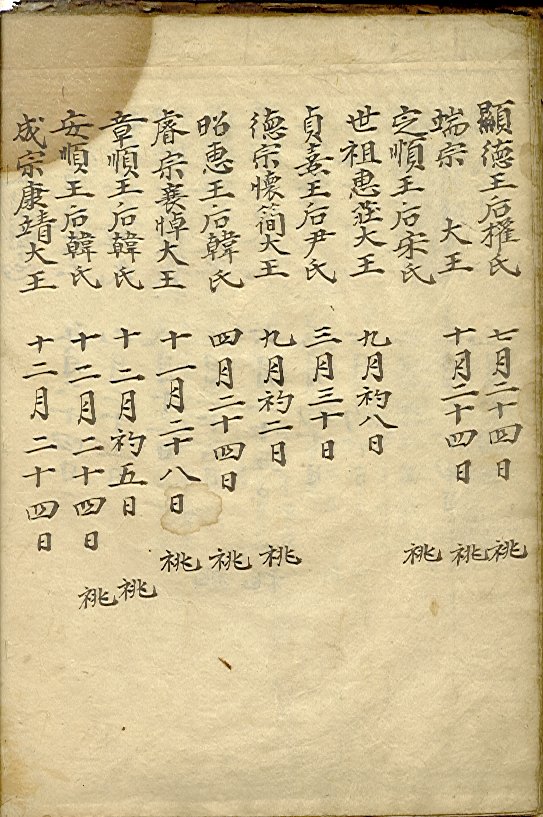 顯德王后權氏 七月二十四日 祧
端宗 大王 十月二十四日 祧
定順王后宋氏 祧
世祖惠莊大王 九月初八日
貞熹王后尹氏 三月三十日
德宗懷簡大王 九月初二日 祧
昭惠王后韓氏 四月二十四日 祧
睿宗襄悼大王 十一月二十八日 祧
章順王后韓氏 十二月初五日 祧
安順王后韓氏 十二月二十四日 祧
成宗康靖大王 十二月二十四日